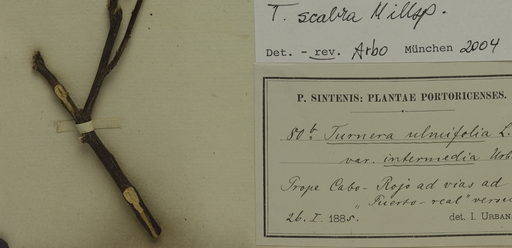 T. scabra Millsp.
Det. - rev. Arbo München 2004
P. SINTENIS: PLANTAE PORTORICENSES.
80b Turnera ulmifolia L.
var. intermedia Urb
Prope Cabo-Rojo ad vias ad
"Puerto-real" versu
26. I. 1885. det. I. URBAN